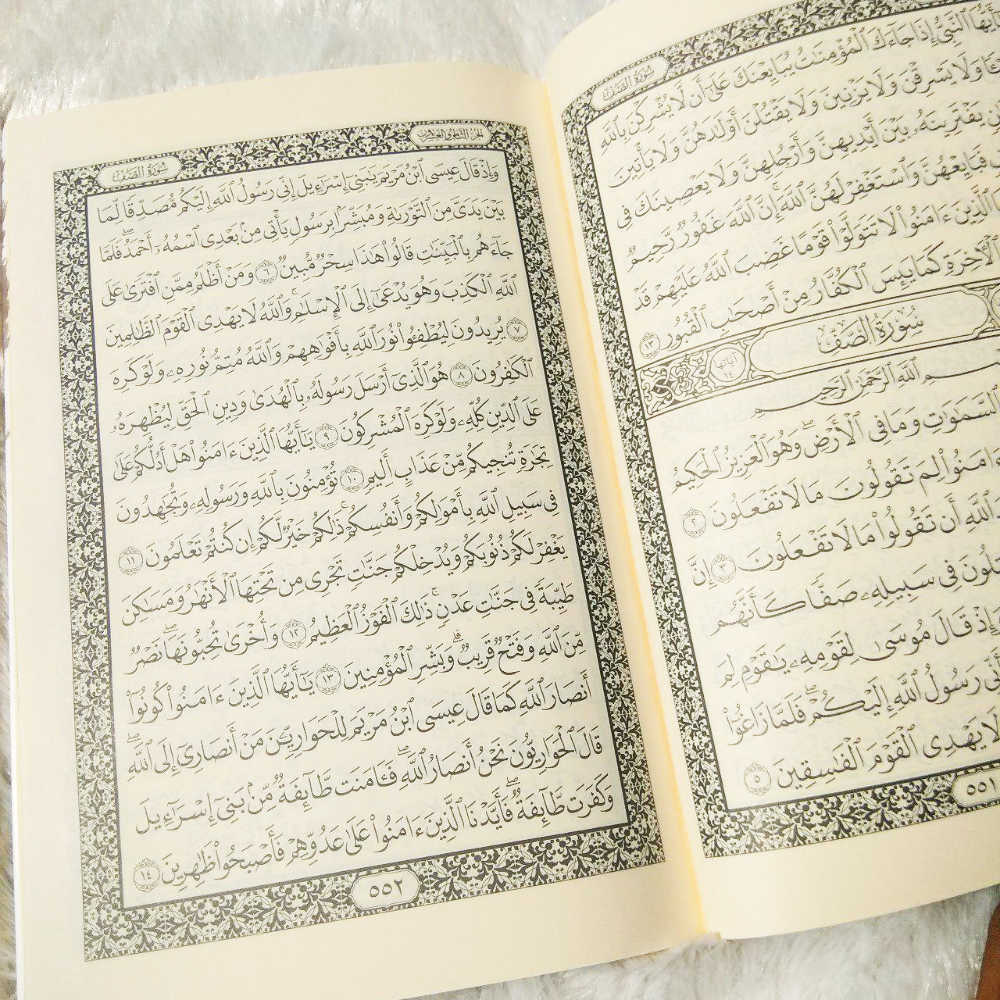 سُورَةُ الصَّفِّ
يَٰٓأَيُّهَا ٱلنَّبِيُّ إِذَا جَآءَكَ ٱلْمُؤْمِنَٰتُ يُبَايِعْنَكَ عَلَىٰٓ أَن لَّا يُشْرِكْنَ بِٱللَّهِ
وَلَا يَسْرِقْنَ وَلَا يَزْنِينَ وَلَا يَقْتُلْنَ أَوْلَٰدَهُنَّ وَلَا يَأْتِينَ
يَفْتَرِينَهُۥ بَيْنَ أَيْدِيهِنَّ وَأَرْجُلِهِنَّ وَلَا يَعْصِينَكَ فِى
فَبَايِعْهُنَّ وَٱسْتَغْفِرْ لَهُنَّ ٱللَّهَ إِنَّ ٱللَّهَ غَفُورٌ رَّحِيمٌ
ٱلَّذِينَ ءَامَنُوا۟ لَا تَتَوَلَّوْا۟ قَوْمًا غَضِبَ ٱللَّهُ عَلَيْهِمْ قَدْ
ٱلْءَاخِرَةِ كَمَا يَئِسَ ٱلْكُفَّارُ مِنْ أَصْحَٰبِ ٱلْقُبُورِ ١٣
سُورَةُ الصَّفِّ
ٱللَّهِ ٱلرَّحْمَٰنِ ٱلرَّحِيمِ
ٱلسَّمَٰوَٰتِ وَمَا فِى ٱلْأَرْضِ وَهُوَ ٱلْعَزِيزُ ٱلْحَكِيمُ
ءَامَنُوا۟ لِمَ تَقُولُونَ مَا لَا تَفْعَلُونَ ٢
ٱللَّهِ أَن تَقُولُوا۟ مَا لَا تَفْعَلُونَ ٣ إِنَّ
فِى سَبِيلِهِۦ صَفًّا كَأَنَّهُم
وَإِذْ قَالَ مُوسَىٰ لِقَوْمِهِۦ يَٰقَوْمِ لِمَ
أَنِّى رَسُولُ ٱللَّهِ إِلَيْكُمْ فَلَمَّا زَاغُوٓا۟
لَا يَهْدِى ٱلْقَوْمَ ٱلْفَٰسِقِينَ ٥
٥٥١
الجزء الثامن والعشرون سُورَةُ الصَّفِّ
وَإِذْ قَالَ عِيسَى ٱبْنُ مَرْيَمَ يَٰبَنِىٓ إِسْرَٰٓءِيلَ إِنِّى رَسُولُ ٱللَّهِ إِلَيْكُم مُّصَدِّقًا لِّمَا
بَيْنَ يَدَىَّ مِنَ ٱلتَّوْرَىٰةِ وَمُبَشِّرًۢا بِرَسُولٍ يَأْتِى مِنۢ بَعْدِى ٱسْمُهُۥٓ أَحْمَدُ فَلَمَّا
جَآءَهُم بِٱلْبَيِّنَٰتِ قَالُوا۟ هَٰذَا سِحْرٌ مُّبِينٌ ٦ وَمَنْ أَظْلَمُ مِمَّنِ ٱفْتَرَىٰ عَلَى
ٱللَّهِ ٱلْكَذِبَ وَهُوَ يُدْعَىٰٓ إِلَى ٱلْإِسْلَٰمِ وَٱللَّهُ لَا يَهْدِى ٱلْقَوْمَ ٱلظَّٰلِمِينَ
٧ يُرِيدُونَ لِيُطْفِـُٔوا۟ نُورَ ٱللَّهِ بِأَفْوَٰهِهِمْ وَٱللَّهُ مُتِمُّ نُورِهِۦ وَلَوْ كَرِهَ
ٱلْكَٰفِرُونَ ٨ هُوَ ٱلَّذِىٓ أَرْسَلَ رَسُولَهُۥ بِٱلْهُدَىٰ وَدِينِ ٱلْحَقِّ لِيُظْهِرَهُۥ
عَلَى ٱلدِّينِ كُلِّهِۦ وَلَوْ كَرِهَ ٱلْمُشْرِكُونَ ٩ يَٰٓأَيُّهَا ٱلَّذِينَ ءَامَنُوا۟ هَلْ أَدُلُّكُمْ عَلَىٰ
تِجَٰرَةٍ تُنجِيكُم مِّنْ عَذَابٍ أَلِيمٍ ١٠ تُؤْمِنُونَ بِٱللَّهِ وَرَسُولِهِۦ وَتُجَٰهِدُونَ
فِى سَبِيلِ ٱللَّهِ بِأَمْوَٰلِكُمْ وَأَنفُسِكُمْ ذَٰلِكُمْ خَيْرٌ لَّكُمْ إِن كُنتُمْ تَعْلَمُونَ ١١
يَغْفِرْ لَكُمْ ذُنُوبَكُمْ وَيُدْخِلْكُمْ جَنَّٰتٍ تَجْرِى مِن تَحْتِهَا ٱلْأَنْهَٰرُ وَمَسَٰكِنَ
طَيِّبَةً فِى جَنَّٰتِ عَدْنٍ ذَٰلِكَ ٱلْفَوْزُ ٱلْعَظِيمُ ١٢ وَأُخْرَىٰ تُحِبُّونَهَا نَصْرٌ
مِّنَ ٱللَّهِ وَفَتْحٌ قَرِيبٌ وَبَشِّرِ ٱلْمُؤْمِنِينَ ١٣ يَٰٓأَيُّهَا ٱلَّذِينَ ءَامَنُوا۟ كُونُوٓا۟
أَنصَارَ ٱللَّهِ كَمَا قَالَ عِيسَى ٱبْنُ مَرْيَمَ لِلْحَوَارِيِّـۧنَ مَنْ أَنصَارِىٓ إِلَى ٱللَّهِ
قَالَ ٱلْحَوَارِيُّونَ نَحْنُ أَنصَارُ ٱللَّهِ فَـَٔامَنَت طَّآئِفَةٌ مِّنۢ بَنِىٓ إِسْرَٰٓءِيلَ
وَكَفَرَت طَّآئِفَةٌ فَأَيَّدْنَا ٱلَّذِينَ ءَامَنُوا۟ عَلَىٰ عَدُوِّهِمْ فَأَصْبَحُوا۟ ظَٰهِرِينَ ١٤
٥٥٢